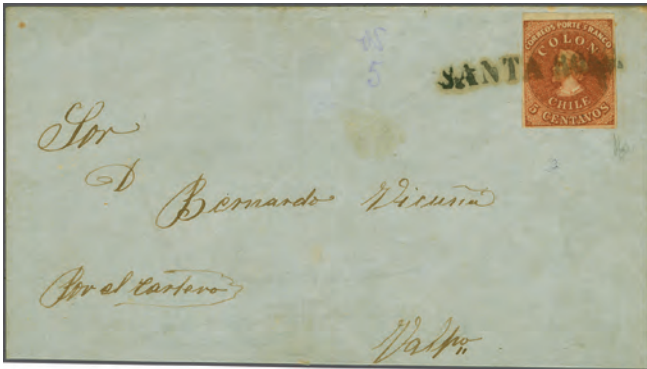 CORREOS PORTE FRANCO
COLON
SANTA
CHILE
5 CENTAVOS
Sor
D
Bernardo Vicuña
Por el Cartero
Valpo